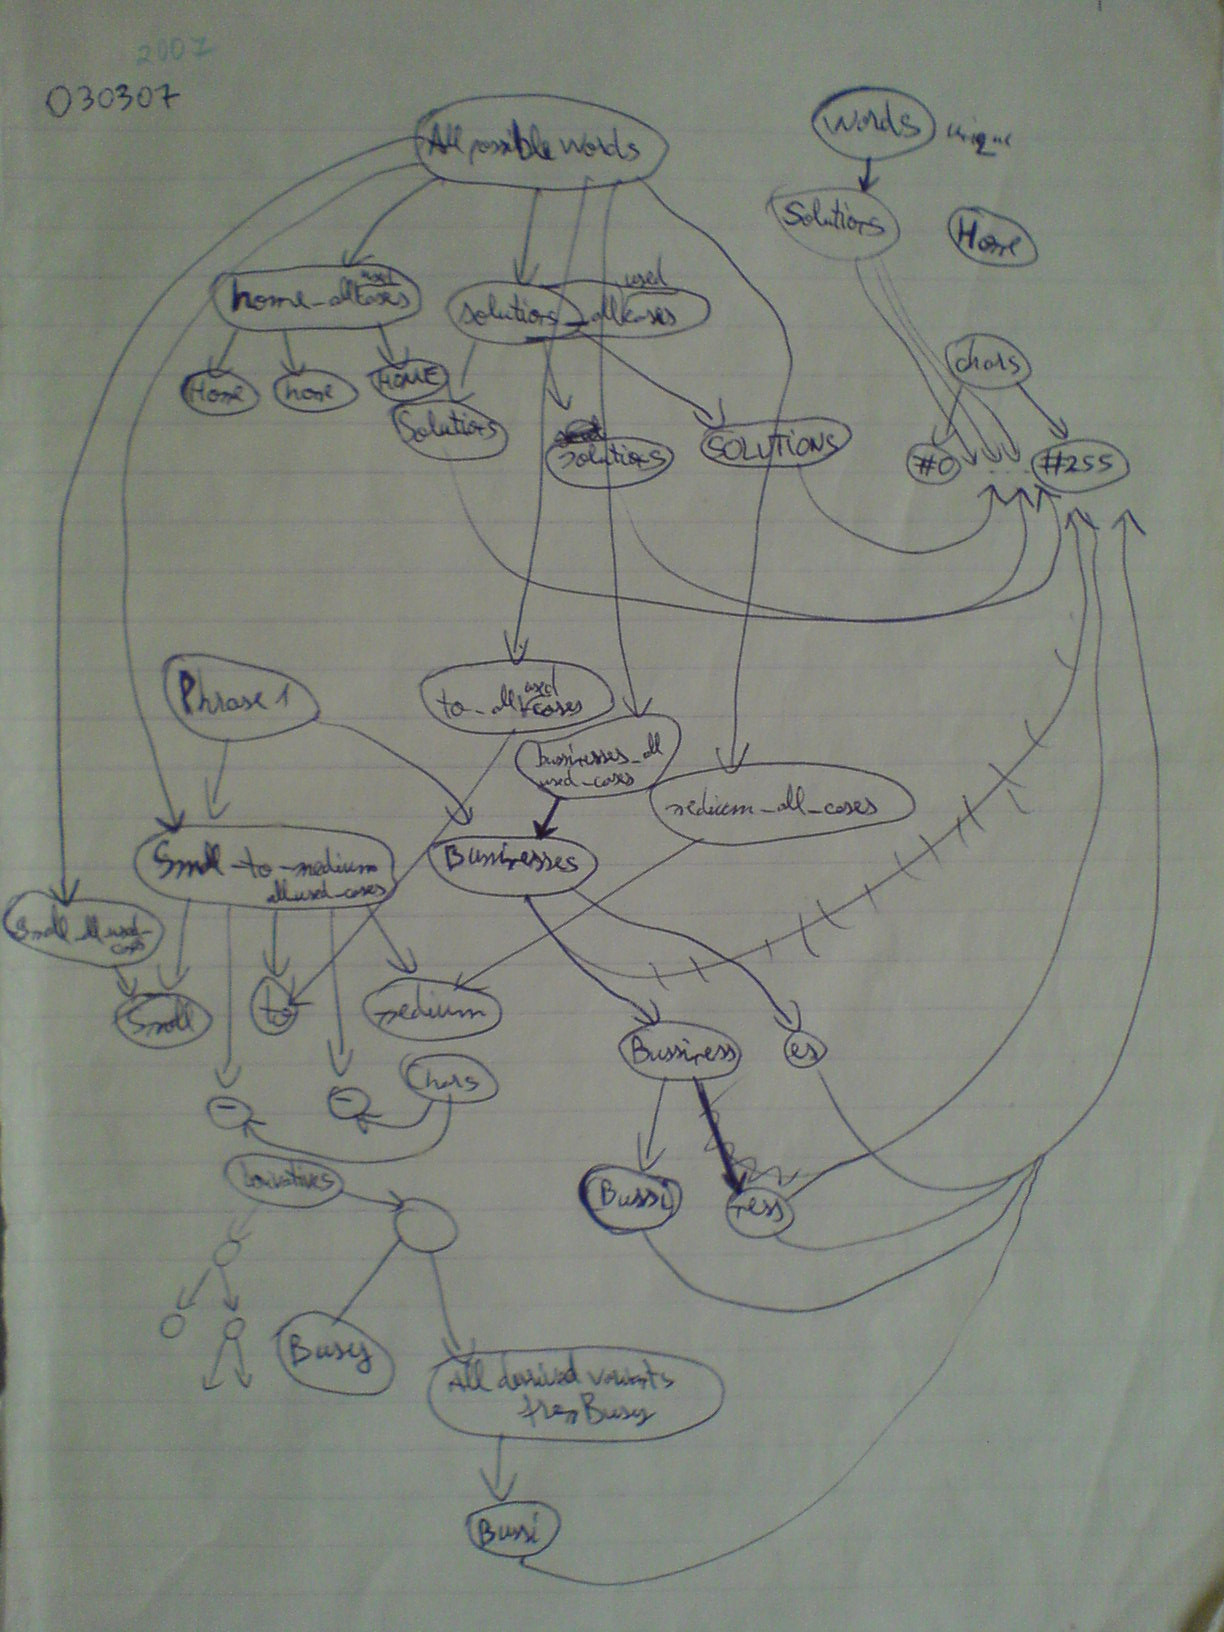 2007
030307
All possible words
Words unique
Solutions
Home
home_all used cases
solutions_all used cases
chars
Home
home
HOME
Solutions
solutions
SOLUTIONS
#0
...
#255
Phrase 1
to_all used cases
bussinesses_all
used_cases
medium_all_cases
Small-to-medium
all used_cases
Bussinesses
Small_all used_
cases
Small
to
medium
Bussiness
es
Chars
-
-
Derivatives
Bussi
ness
Busy
All derived variants
from Busy
Bussi